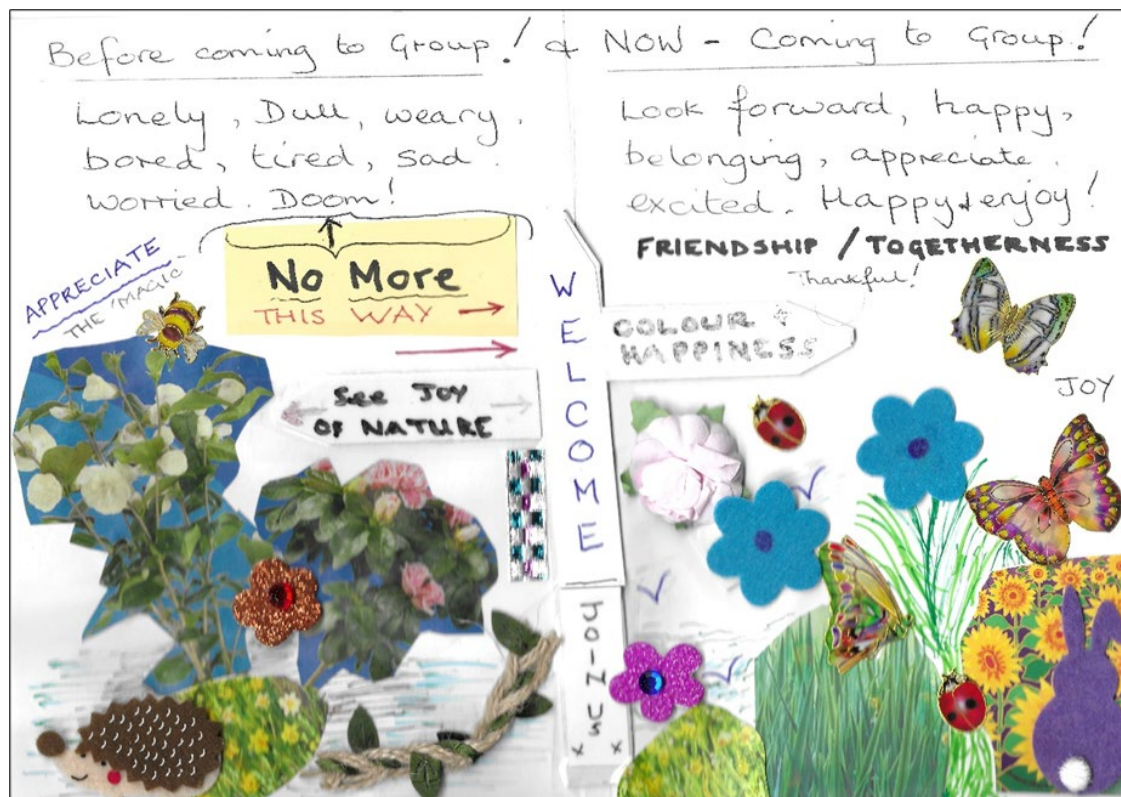 Before coming to Group! & NOW - Coming to Group!
Lonely, Dull, weary.
bored, tired, sad.
worried. Doom!
Look forward, happy,
belonging, appreciate.
excited. Happy & enjoy!
FRIENDSHIP / TOGETHERNESS
Thankful!
APPRECIATE
THE 'MAGIC
No More
THIS WAY
See JOY
OF NATURE
WELCOME
COLOUR &
HAPPINESS
JOY
JOIN US